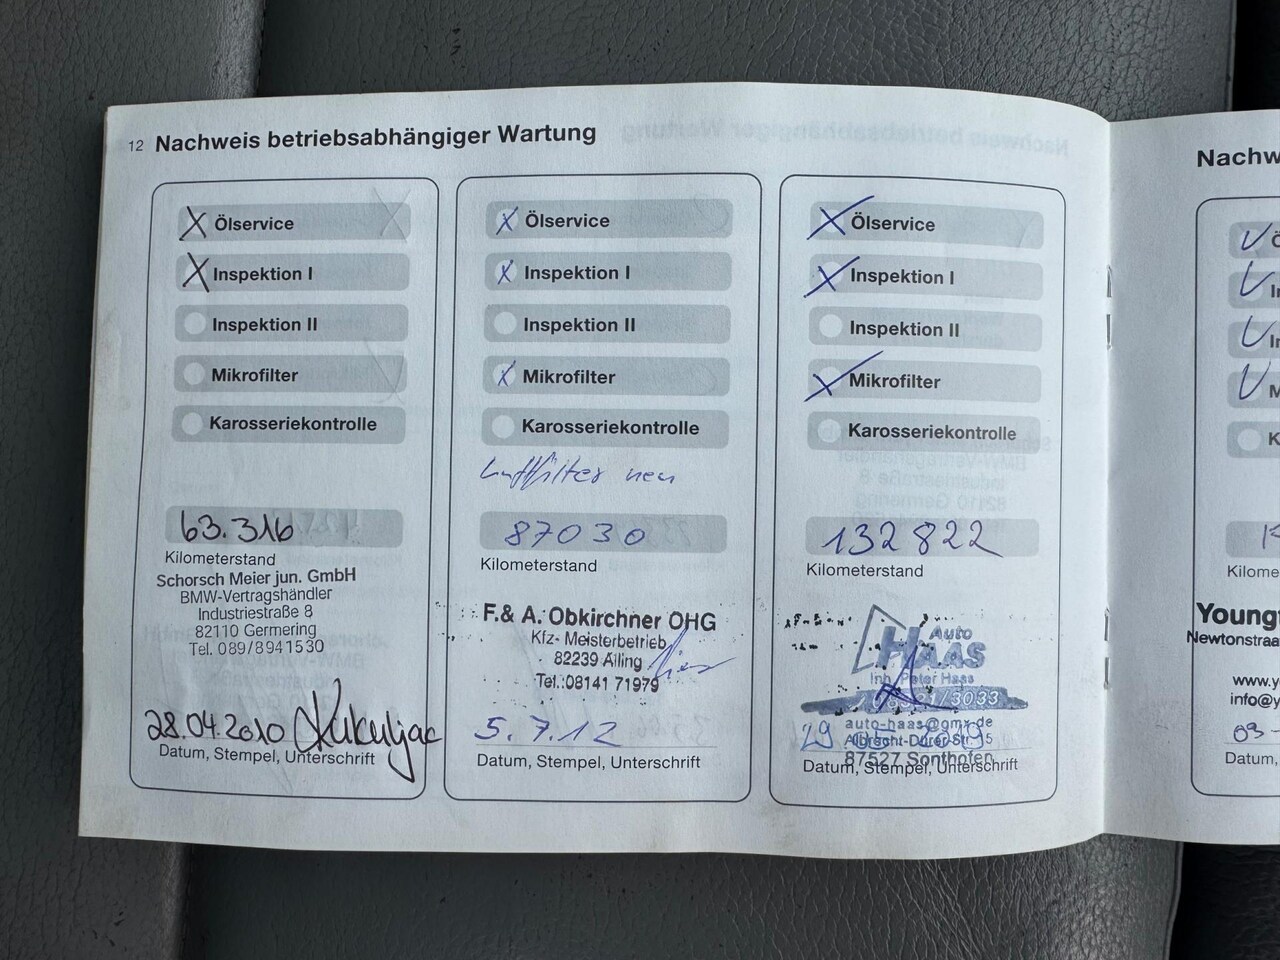 12 Nachweis betriebsabhängiger Wartung
X Ölservice
X Inspektion I
Inspektion II
Mikrofilter
Karosseriekontrolle
63.316
Kilometerstand
Schorsch Meier jun. GmbH
BMW-Vertragshändler
Industriestraße 8
82110 Germering
Tel. 089/8941530
28.04.2010
Datum, Stempel, Unterschrift
X Ölservice
X Inspektion I
Inspektion II
X Mikrofilter
Karosseriekontrolle
Luftfilter neu
87030
Kilometerstand
F.& A. Obkirchner OHG
Kfz- Meisterbetrieb
82239 Alling
Tel.:08141 71979
5.7.12
Datum, Stempel, Unterschrift
X Ölservice
X Inspektion I
Inspektion II
X Mikrofilter
Karosseriekontrolle
132822
Kilometerstand
Auto
HAAS
Inh. Peter Haas
/3033
auto-haas@gmx.de
Albrecht-Dürer-Str. 5
87527 Sonthofen
29
Datum, Stempel, Unterschrift
Nachw
Ö
In
In
M
K
Kilome
Young
Newtonstraa
www.y
info@y
09-
Datum,